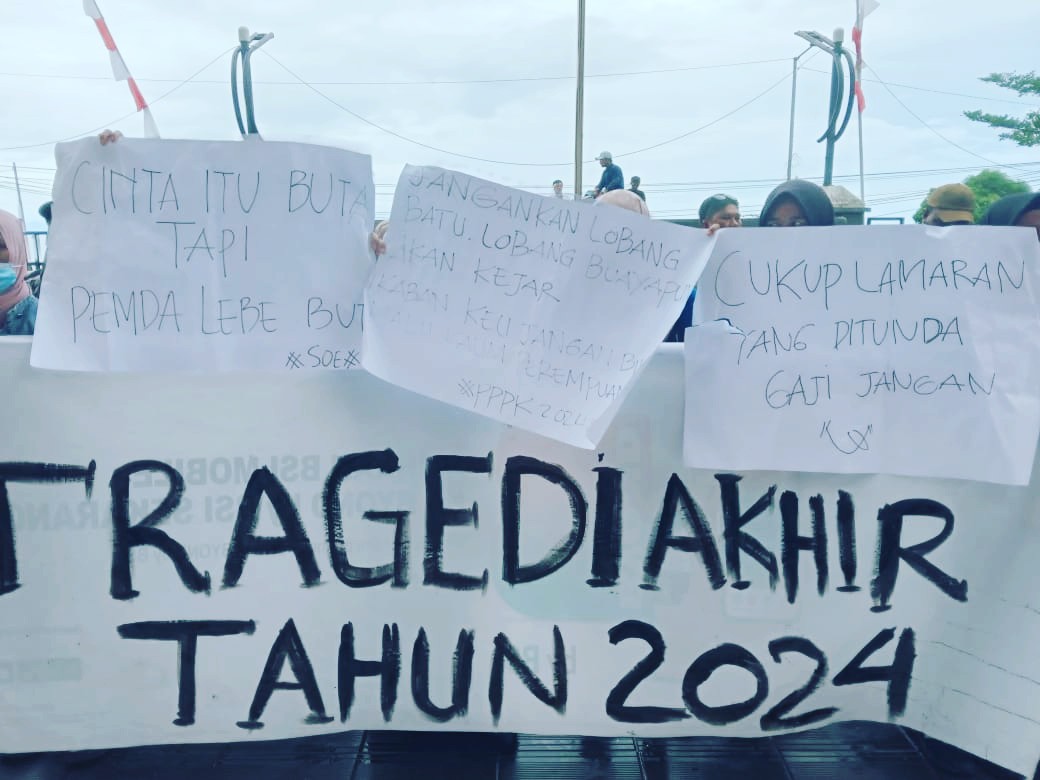 CINTA ITU BUTA
TAPI
PEMDA LEBE BUT
#SOE#
JANGANKAN LOBANG
BATU. LOBANG BUAYAPU
KEJAR
KABAN KEU JANGAN
PEREMPUAN
#PPPK 2024
CUKUP LAMARAN
YANG DITUNDA
GAJI JANGAN
TRAGEDI AKHIR
TAHUN 2024
BSI MOBILE